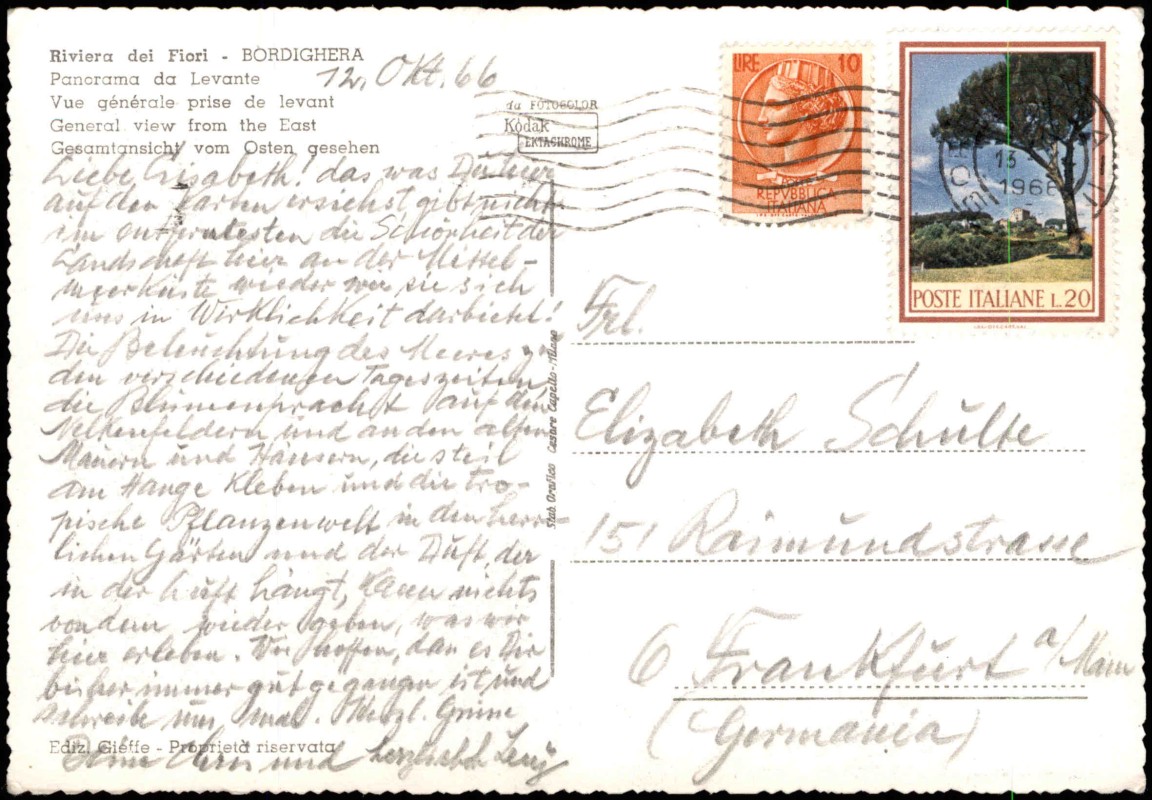 Riviera dei Fiori - BORDIGHERA
Panorama da Levante
Vue générale prise de levant
General view from the East
Gesamtansicht vom Osten gesehen
12. Okt. 66
da FOTOCOLOR
Kodak
EKTACHROME
LIRE 10
REPVBBLICA
ITALIANA
13
1966
POSTE ITALIANE L.20
Liebe Elisabeth! das was Du hier
auf den Karten ersiehst gibt nicht
im entferntesten die Schönheit der
Landschaft hier an der Mittel-
meerküste wieder wie sie sich
uns in Wirklichkeit darbietet!
Die Beleuchtung des Meeres zu
den verschiedenen Tageszeiten,
die Blumenpracht auf den
Nelkenfeldern und an den alten
Mauern und Häusern, die steil
am Hange kleben und die tro-
pische Pflanzenwelt in den herr-
lichen Gärten und der Duft, der
in der Luft hängt, kann nichts
von dem wieder geben, was wir
hier erleben. Wir hoffen, dass es Dir
bisher immer gut gegangen ist und
schreibe uns mal. Herzl. Grüsse
Dein und herzlichst
Ediz. Gieffe - Proprietà riservata
Stab. Grafico Cesare Capello - Milano
Frl.
Elizabeth Schulte
151 Raimundstrasse
6 Frankfurt a/Main
(Germania)